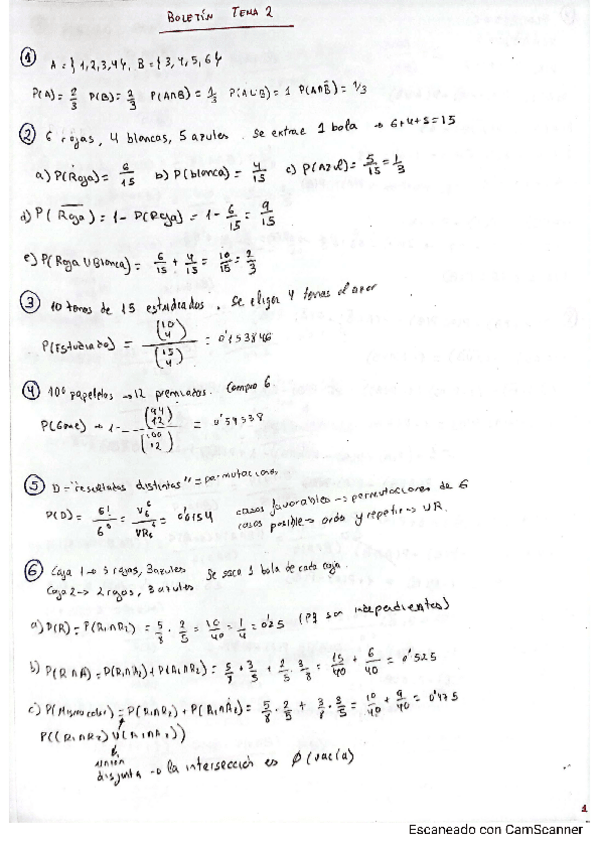 BOLETÍN TEMA 2
① A = { 1,2,3,4 }, B = { 3,4,5,6 }
P(A) = 2/3 P(B) = 2/3 P(A∩B) = 1/3 P(A∪B) = 1 P(A∩B̄) = 1/3
② 6 rojas, 4 blancas, 5 azules. Se extrae 1 bola → 6+4+5=15
a) P(Roja) = 6/15 b) P(blanca) = 4/15 c) P(Azul) = 5/15 = 1/3
d) P(R̅o̅j̅a̅) = 1 - P(Roja) = 1 - 6/15 = 9/15
e) P(Roja ∪ Blanca) = 6/15 + 4/15 = 10/15 = 2/3
③ 10 temas de 15 estudiados. Se eligen 4 temas al azar
P(Estudiado) = (10 4) / (15 4) = 0'153846
④ 100 papeletas → 12 premiados. Compro 6
P(Gane) → 1 - (94 12) / (100 12) =
⑤ D = "resultados distintos" = permutaciones
P(D) = 6! / 6⁶ = V₆⁶ / VR₆⁶ = 0'0154 casos favorables → permutaciones de 6
casos posible → orden y repetir → VR.
⑥ Caja 1 → 5 rojas, 3 azules Se saca 1 bola de cada caja.
Caja 2 → 2 rojas, 3 azules
a) P(R) = P(R₁∩R₂) = 5/8 · 2/5 = 10/40 = 1/4 = 0'25 (Pq son independientes)
b) P(R∩A) = P(R₁∩A₂) + P(A₁∩R₂) = 5/8 · 3/5 + 2/5 · 3/8 = 15/40 + 6/40 = 0'525
c) P(Mismo color) = P(R₁∩R₂) + P(A₁∩A₂) = 5/8 · 2/5 + 3/8 · 3/5 = 10/40 + 9/40 = 0'475
P((R₁∩R₂) ∪ (A₁∩A₂))
unión
disjunta → la intersección es Ø (vacía)
1
Escaneado con CamScanner